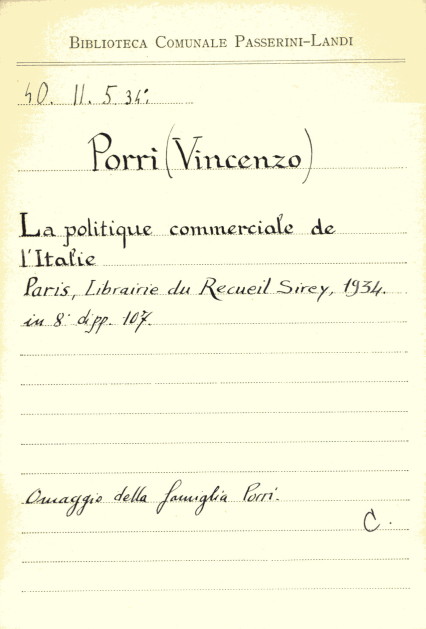 BIBLIOTECA COMUNALE PASSERINI-LANDI
40. II. 5. 34:
Porri (Vincenzo)
La politique commerciale de
l'Italie
Paris, Librairie du Recueil Sirey, 1934.
in 8° di pp. 107.
Omaggio della famiglia Porri.
C.